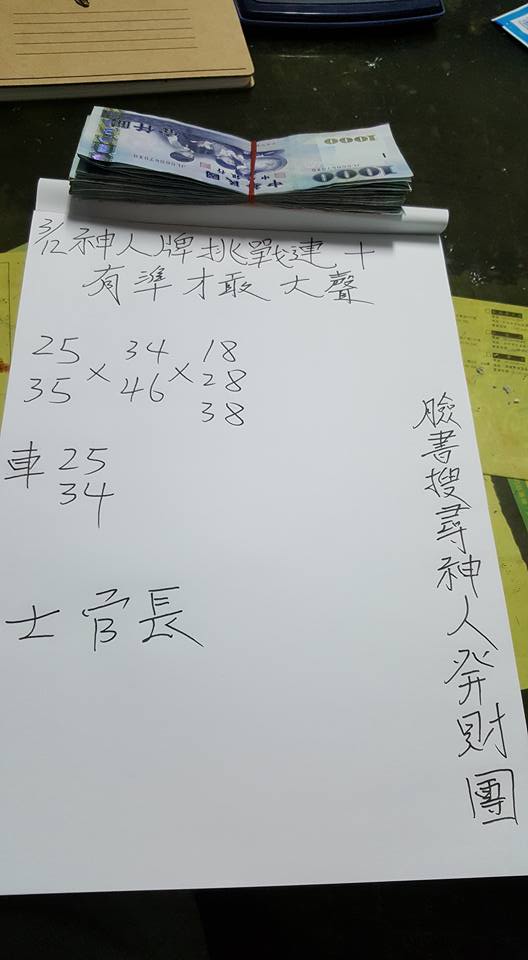 1000
1000
JL666667010
3/12 神人牌挑戰連十
有準才敢大聲
25 34 18
35 × 46 × 28
38
車 25
34
士官長
臉書搜尋神人発財團